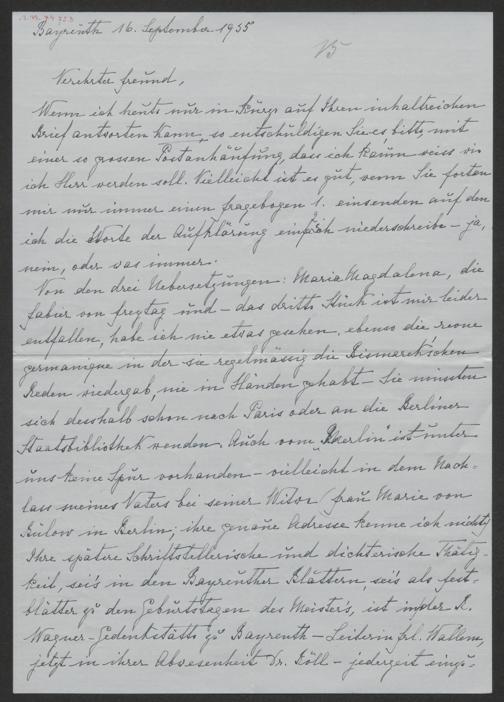 Bayreuth 16. September 1935
15
Verehrter Freund,
Wenn ich heute nur in Kürze auf Ihren inhaltreichen
Brief antworten kann, so entschuldigen Sie es bitte mit
einer so grossen Postanhäufung, dass ich kaum weiss wie
ich Herr werden soll. Vielleicht ist es gut, wenn Sie
mir nur immer einen Fragebogen einsenden auf den
ich die Worte der Aufklärung einfach niederschreibe – ja,
nein, oder was immer.
Von den drei Uebersetzungen: Maria Magdalena, die
fabier von Freytag und – das dritte Stück ist mir leider
entfallen, habe ich nie etwas gesehen, ebenso die revue
germanique in der sie regelmässig die Bismarck'schen
Reden wiedergab, nie in Händen gehabt – Sie müssten
sich desshalb schon nach Paris oder an die Berliner
Staatsbibliothek wenden. Auch vom "Merlin" ist unter
uns keine Spur vorhanden – vielleicht in dem Nach-
lass meines Vaters bei seiner Witwe / Frau Marie von
Bülow in Berlin; ihre genaue Adresse kenne ich nicht/
Ihre spätere Schriftstellerische und dichterische Thätig-
keit, sei's in den Bayreuther Blättern, sei's als Fest-
blätter zu den Geburtstagen des Meisters, ist in der R.
Wagner-Gedenkstätte zu Bayreuth – Leiterin frl. Wallem,
jetzt in ihrer Abwesenheit Dr. – jederzeit einzu-